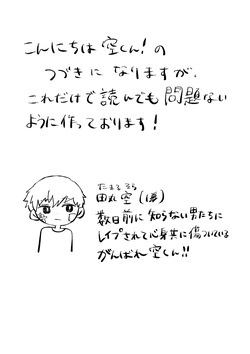 こんにちは 空くん！の
つづきに なりますが、
これだけで読んでも問題ない
ように作っております！
空(僕)
数日前に知らない男たちに
レイプされて心身共に傷ついている
がんばれ空くん!!